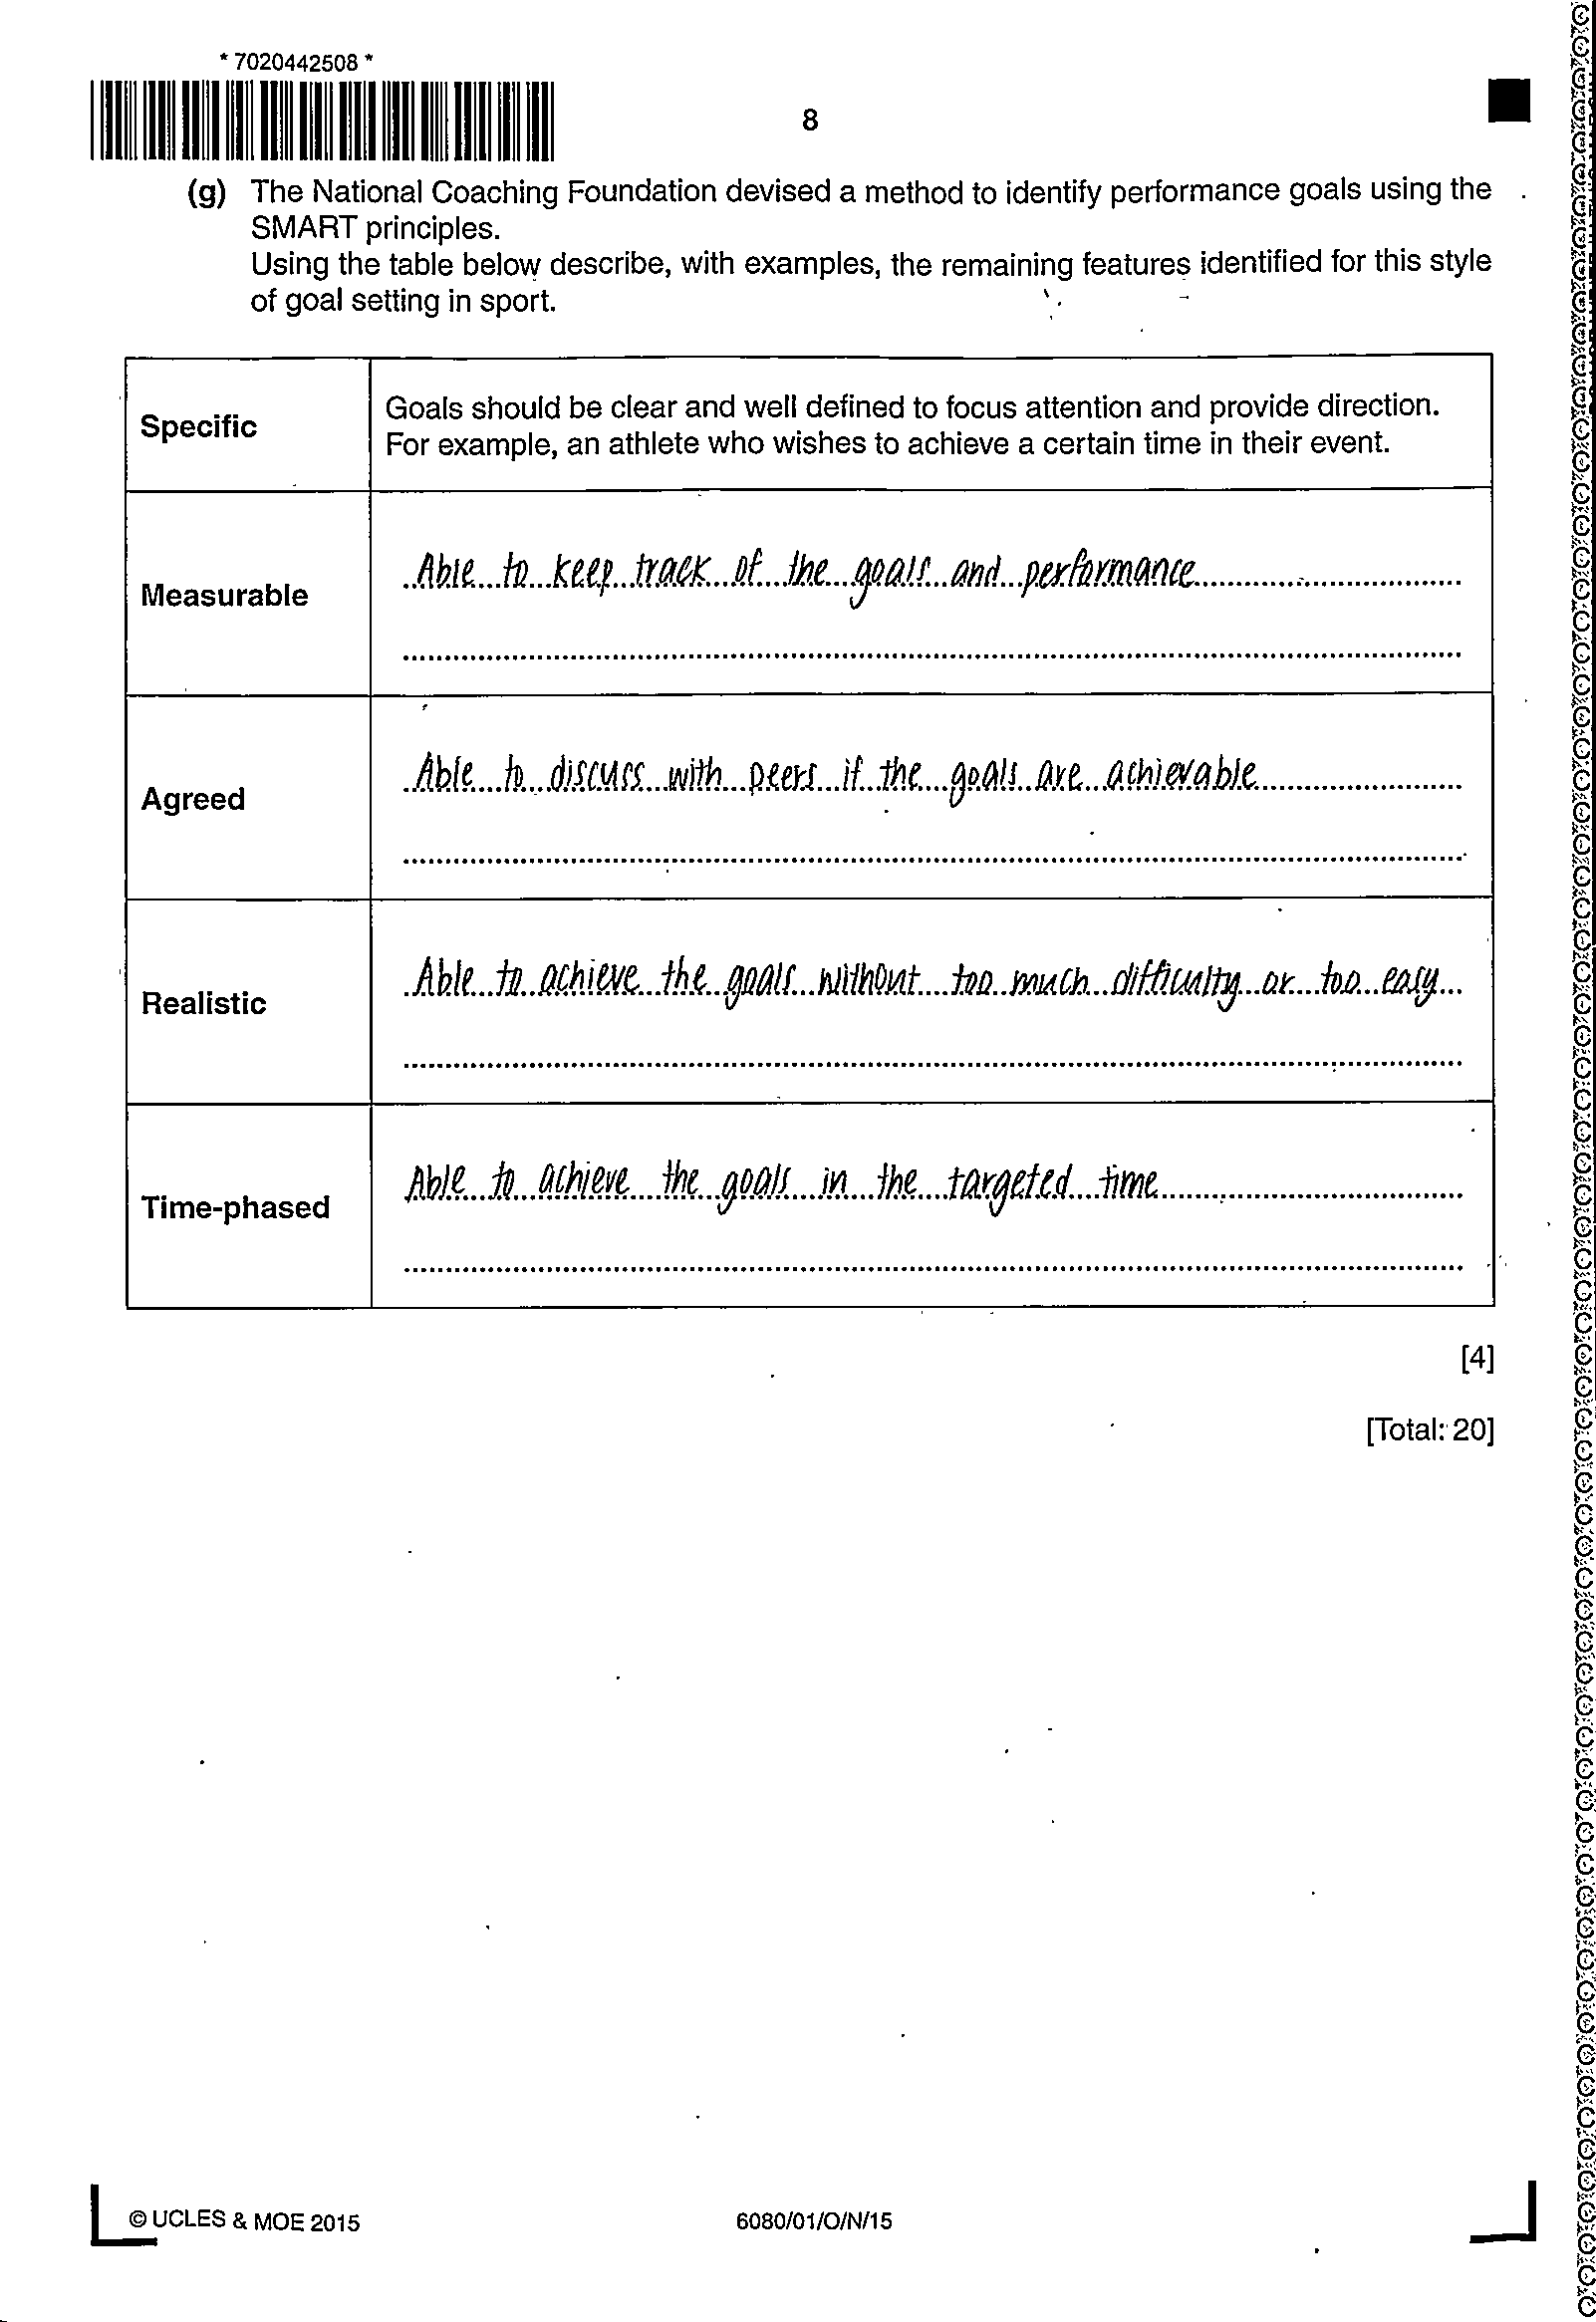 * 7020442508 *
8
(g) The National Coaching Foundation devised a method to identify performance goals using the
SMART principles.
Using the table below describe, with examples, the remaining features identified for this style
of goal setting in sport.
Specific
Goals should be clear and well defined to focus attention and provide direction.
For example, an athlete who wishes to achieve a certain time in their event.
Measurable
Able to keep track of the goals and performance
Agreed
Able to discuss with peers if the goals are achievable
Realistic
Able to achieve the goals without too much difficulty or too easy
Time-phased
Able to achieve the goals in the targeted time
[4]
[Total: 20]
© UCLES & MOE 2015
6080/01/O/N/15